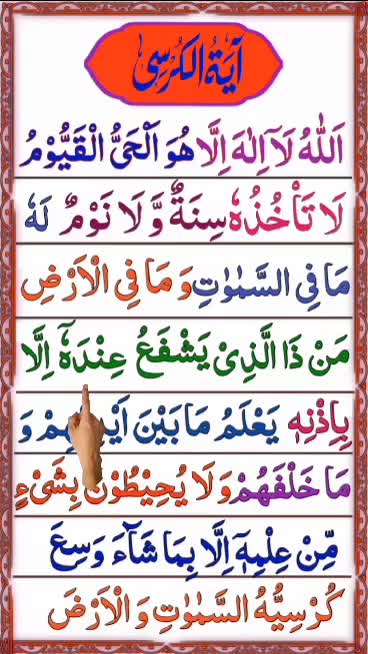 آيَةُ الكُرسِى
اَللّٰهُ لَاۤ اِلٰهَ اِلَّا هُوَ اَلْحَیُّ الْقَیُّوْمُ
لَا تَاْخُذُهٗ سِنَةٌ وَّ لَا نَوْمٌ لَهٗ
مَا فِی السَّمٰوٰتِ وَ مَا فِی الْاَرْضِ
مَنْ ذَا الَّذِیْ یَشْفَعُ عِنْدَهٗۤ اِلَّا
بِاِذْنِهٖ یَعْلَمُ مَا بَیْنَ اَیْدِیْهِمْ وَ
مَا خَلْفَهُمْ وَ لَا یُحِیْطُوْنَ بِشَیْءٍ
مِّنْ عِلْمِهٖۤ اِلَّا بِمَا شَآءَ وَسِعَ
كُرْسِیُّهُ السَّمٰوٰتِ وَ الْاَرْضَ